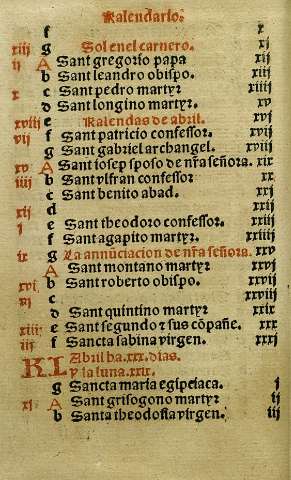 Kalendario.
f x
xiij g Sol en el carnero. xj
ij A Sant gregorio papa xij
b Sant leandro obispo. xiij
x c Sant pedro martyr xiiij
d Sant longino martyr. xv
xviij e Kalendas de abril. xvj
vij f Sant patricio confessor. xvij
g Sant gabriel archangel. xviij
xv A Sant iosep sposo de nr̃a señora. xix
iiij b Sant ylfran confessor xx
c Sant benito abad. xxj
xij d xxij
j e Sant theodoro confessor. xxiij
f Sant agapito martyr. xxiiij
ix g La annũciacion de nr̃a señora. xxv
A Sant montano martyr xxvj
xvij b Sant roberto obispo. xxvij
vj c xxviij
d Sant quintino martyr xxix
xiiij e Sant segundo ⁊ sus cõpañe. xxx
iij f Sancta sabina virgen. xxxj
KL Abril ha .xxx. dias.
y la luna .xxix.
g Sancta maria egipciaca. j
xj A Sant grisogono martyr ij
b Santa theodosia virgen. iij